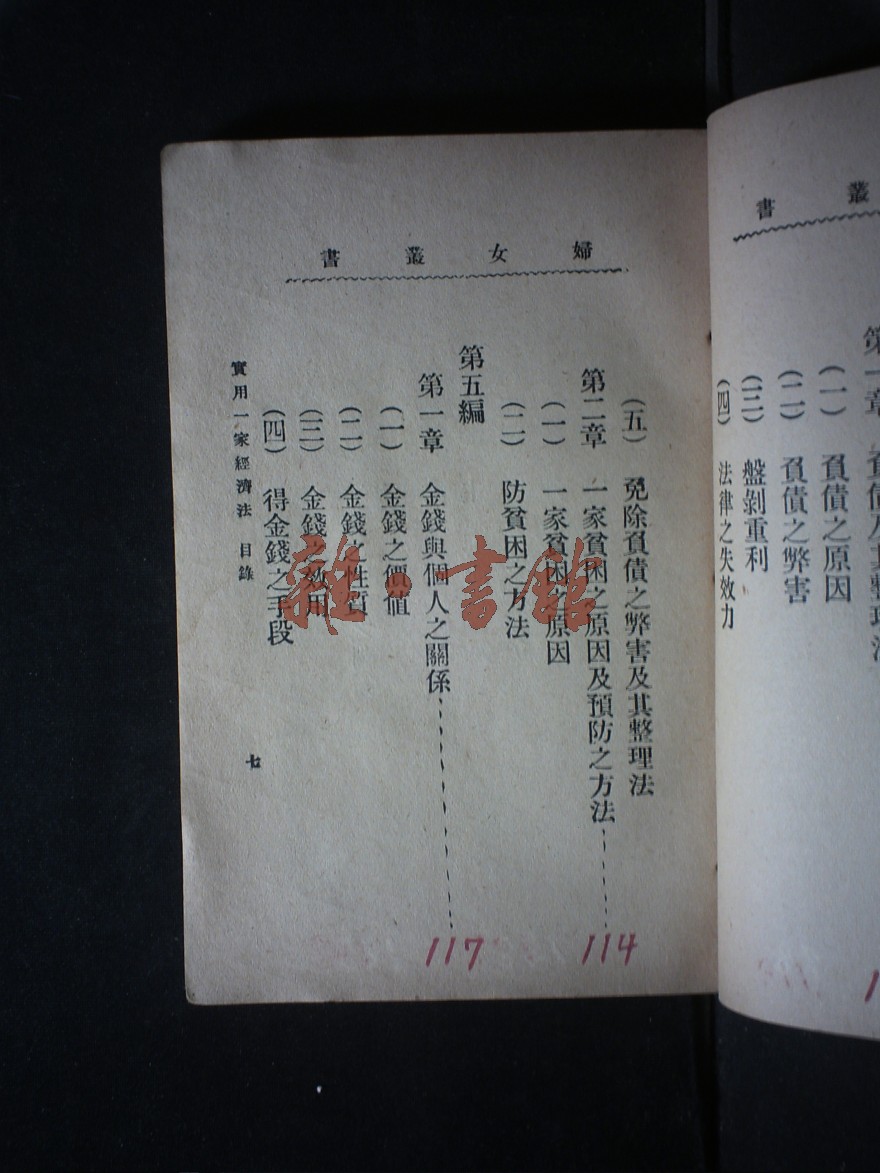 叢書
第一章 負債及其整理法
(一) 負債之原因
(二) 負債之弊害
(三) 盤剝重利
(四) 法律之失效力
婦女叢書
(五) 免除負債之弊害及其整理法
第二章 一家貧困之原因及預防之方法 114
(一) 一家貧困之原因
(二) 防貧困之方法
第五編
第一章 金錢與個人之關係 117
(一) 金錢之價值
(二) 金錢之性質
(三) 金錢之效用
(四) 得金錢之手段
實用一家經濟法 目錄
七
雜·書館